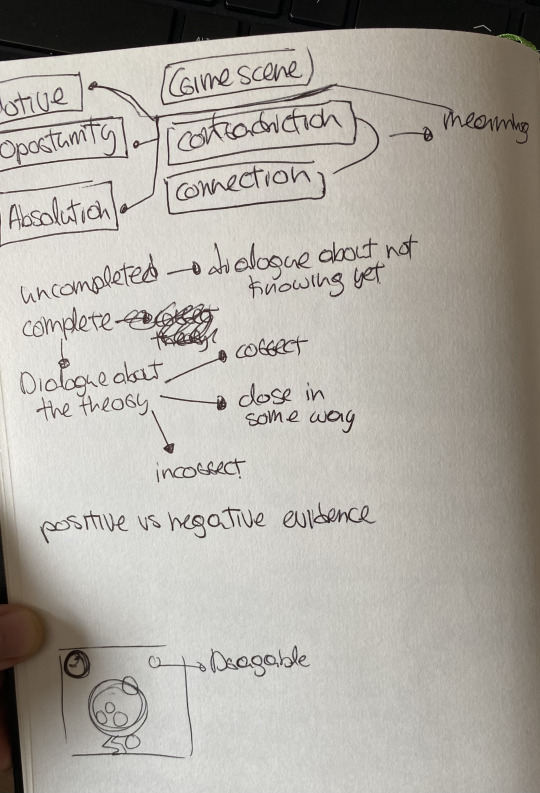 Crime scene
otive
contradiction
meaning
Opostunity
connection
Absolution
uncompleted dialogue about not
knowing yet
complete
Dialogue about
the theory
correct
close in
some way
incorrect
positive vs negative evidence
Dragable